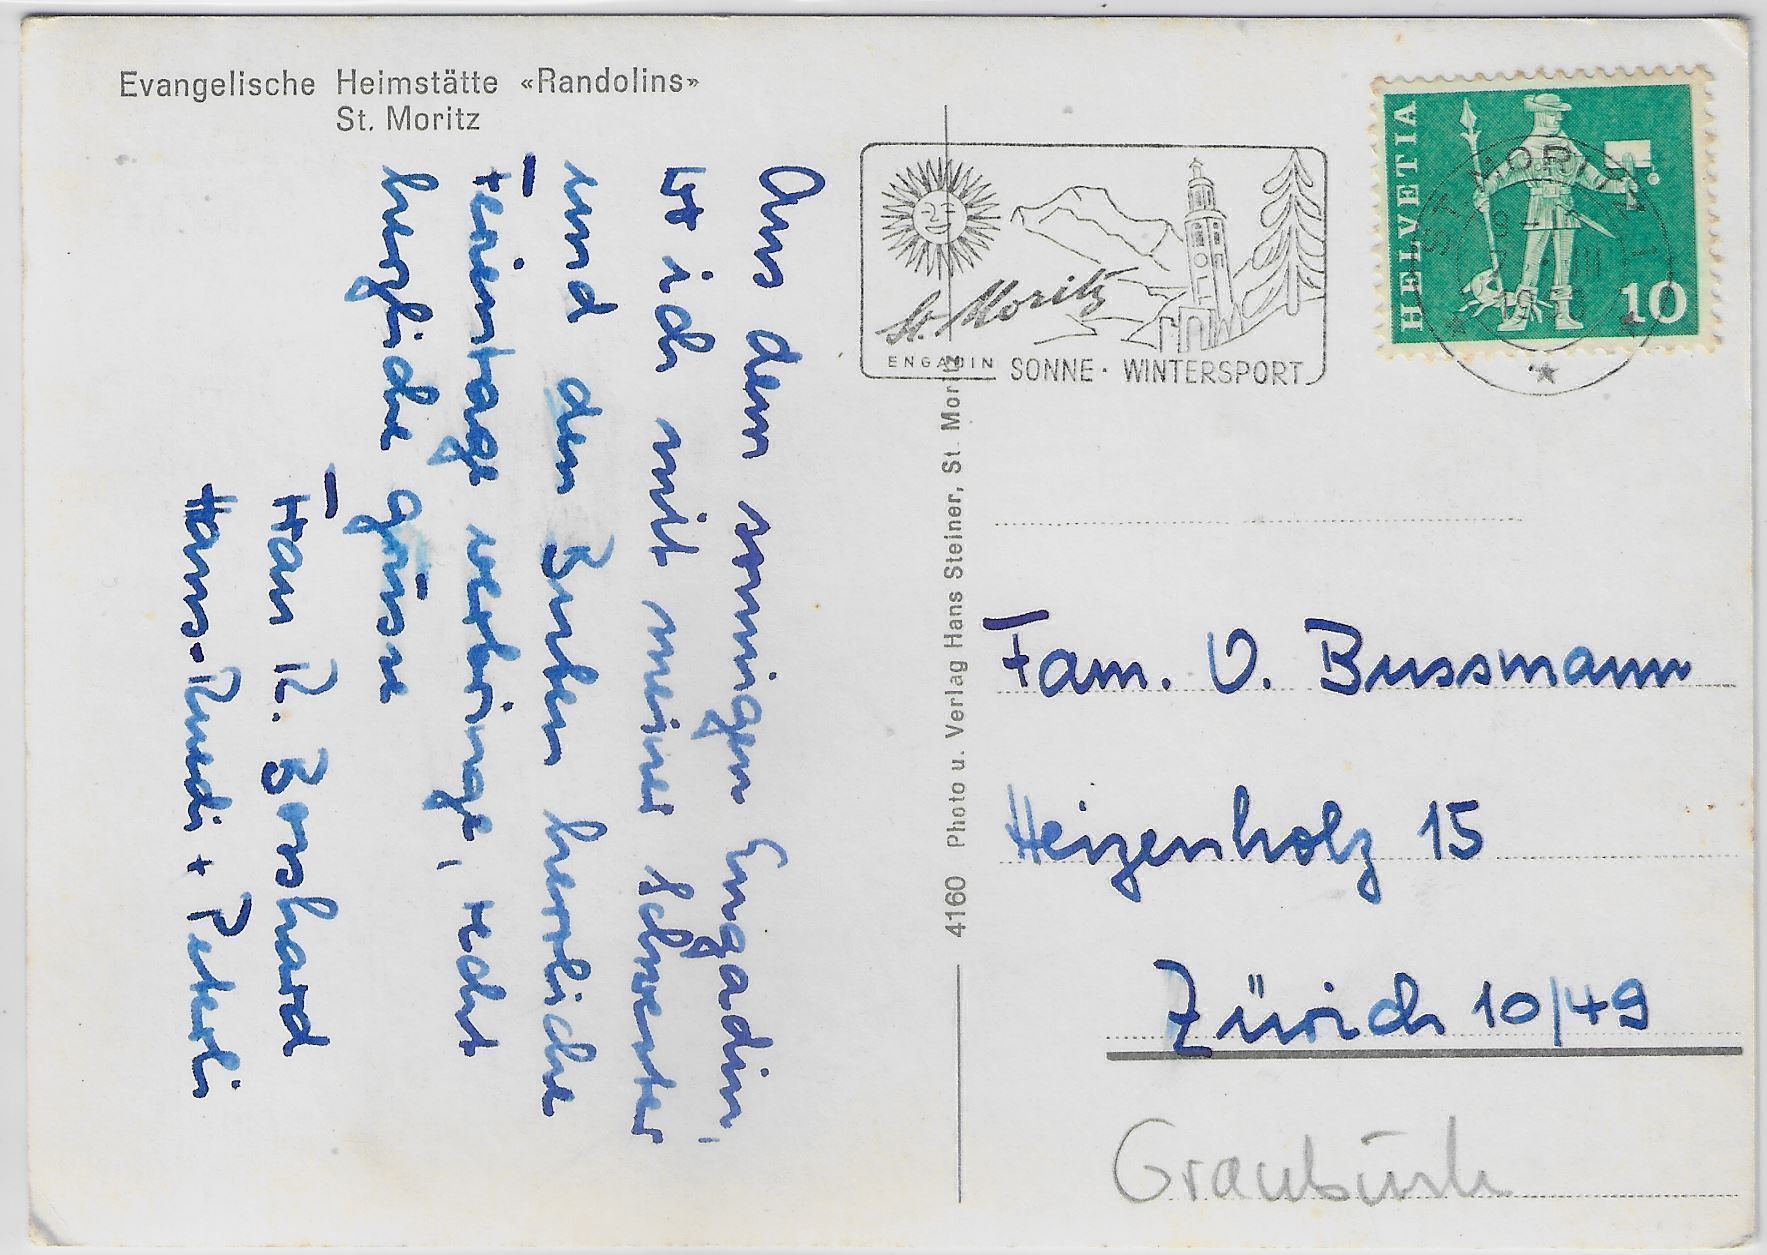 Evangelische Heimstätte «Randolins»
St. Moritz
Aus dem sonnigen Engadin,
wo ich mit meiner Schwester
und den Buben herrliche
Ferientage verbringe, recht
herzliche grüsse
R. Bosshard
Hans-Ruedi + Peterli
4160 Photo u. Verlag Hans Steiner, St. Moritz
St. Moritz
ENGADIN SONNE · WINTERSPORT
HELVETIA
10
ST. MORITZ 1
Fam. O. Bussmann
Heizenholz 15
Zürich 10/49